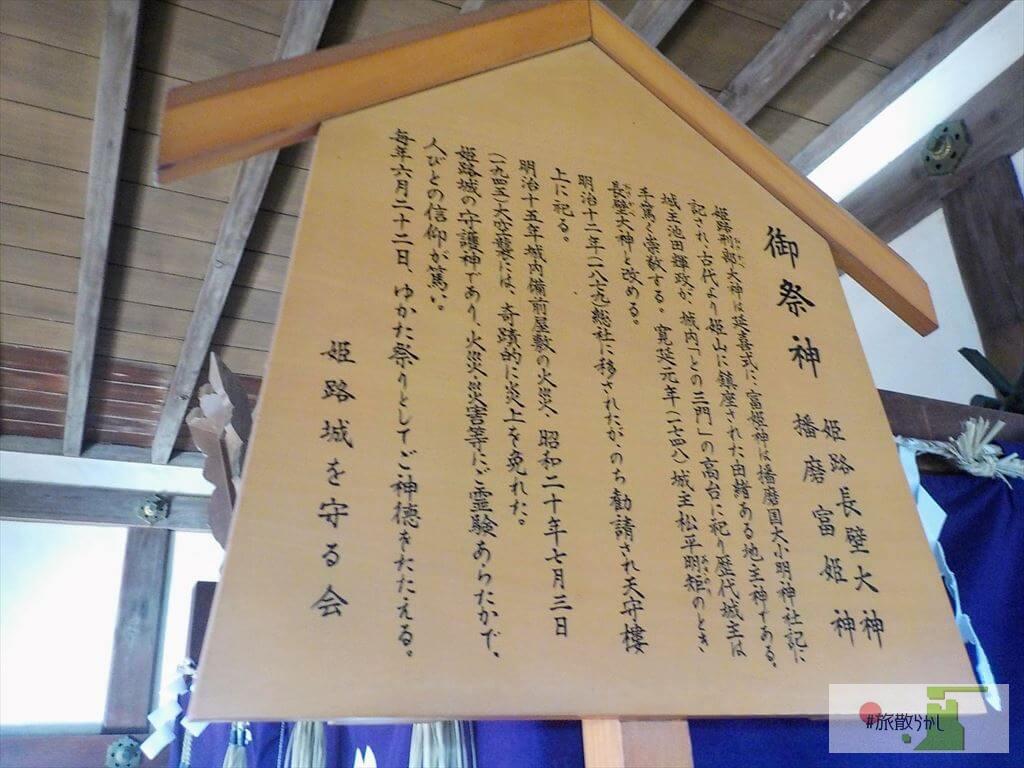 御祭神
姫路長壁大神
播磨富姫神
姫路刑部大神は延喜式に、富姫神は播磨国大小明神社記に
記され、古代より姫山に鎮座された由緒ある地主神である。
城主池田輝政が、城内「との三門」の高台に祀り歴代城主は
手篤く崇敬する。寛延元年(一七四八)城主松平明矩のとき
長壁大神と改める。
明治十二年(一八七九)総社に移されたが、のち勧請され天守楼
上に祀る。
明治十五年城内備前屋敷の火災、昭和二十年七月三日
(一九四五)大空襲には、奇蹟的に炎上を免れた。
姫路城の守護神であり、火災・災害等にご霊験あらたかで、
人びとの信仰が篤い。
毎年六月二十二日、ゆかた祭りとしてご神徳をたたえる。
姫路城を守る会
#旅散らかし